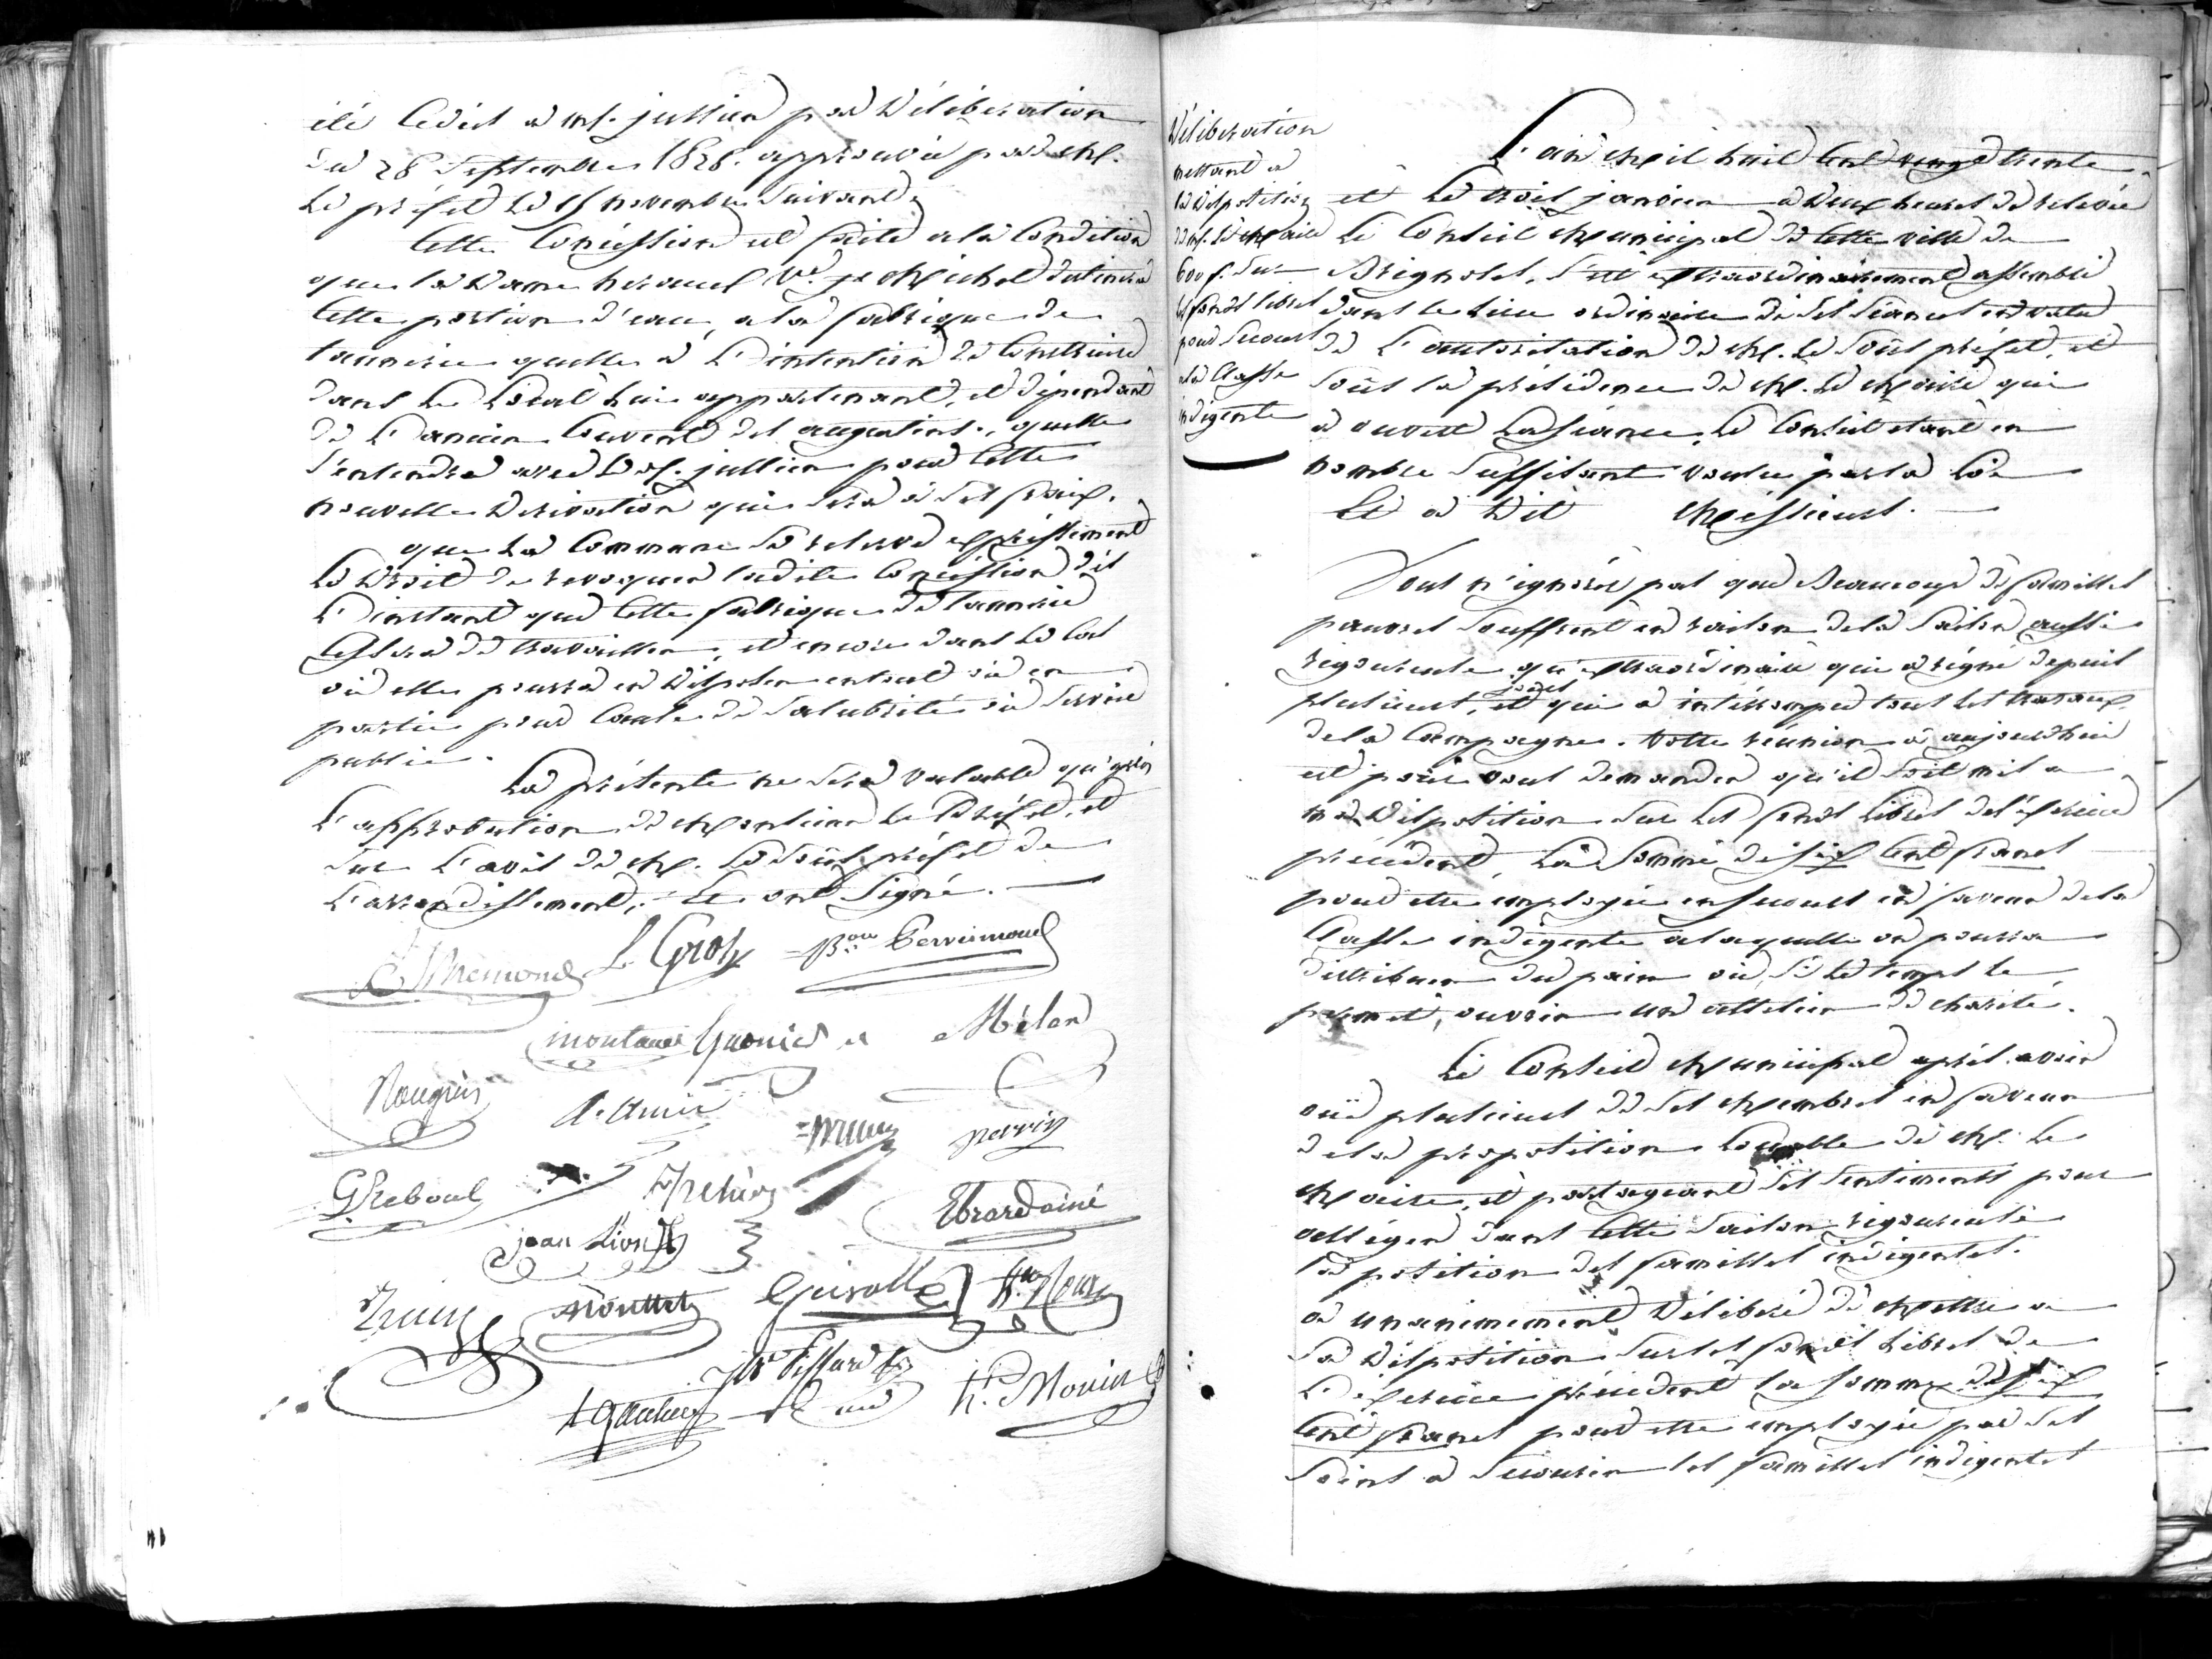 été cédés a mr. jullien par déliberation
du 28 Septembre 1828. approuvée par Mr.
le préfet le 15 novembre Suivant.
Cette Concession est faite a la Condition
que la Dame ve. née Michel destinera
Cette portion d'eau, a la fabrique de
tannerie quelle a L'intention de Construire
dans le Local lui appartenant, et dépendant
de L'ancien Couvent des augustins, quelle
S'entendra avec le Sr. jullien pour Cette
nouvelle Derivation qui sera à Ses fraix.
que la Commune Se reserve expressement
le Droit de revoquer ladite Concession dès
L'instant que Cette fabrique de tannerie
Cessera de travailler, et encore dans le Cas
où elle pourra en Disposer entout ou en
partie pour Cause de Salubrité ou Service
public.
La présente ne Sera valable qu'après
L'approbation de Monsieur le Préfet, et
Sur L'avis de Mr. le Sous préfet de
L'arrondissement, et ont Signé.
L. Gros Bon Gerrismond
montanié Garnier Mélan
Nougiés
perrin
G Reboul
Ebrard ainé
jean Lion
Mouttet Guirolle
Pissard
h. Monier
Déliberation
mettant a
la Disposition
de mr. le Maire
600 f. Sur
les fonds libres
pour Secours
a la Classe
indigente
L'an Mil huit Cent vingt trente
et le trois janvier a Deux heures de relevée
Le Conseil Municipal de Cette ville de
Brignoles, S'est extraordinairement assemblé
dans le lieu ordinaire de Ses Séances en vertu
de L'autorisation de Mr. le Sous préfet, et
Sous la présidence de Mr. le Maire qui
a ouvert La Séance, le Conseil etant en
nombre Suffisant voulu par la Loi
Et a Dit Messieurs.
Vous n'ignorés pas que Beaucoup de familles
pauvres Souffrent en raison de la Saison aussi
rigoureuse qu'extraordinaire qui a régné depuis
plusieurs jours, et qui a intérrompu tous les travaux
de la Campagne. Votre reunion d'aujourdhui
est pour vous demander qu'il Soit mis a
ma Disposition Sur les fonds Libres de l'exercice
précédent, La Somme de Six Cent francs
pour etre employée en Secours en faveur de la
Classe indigente a laquelle on pourra
distribuer du pain ou, Si le temps le
permet, ouvrir un attelier de charité.
Le Conseil Municipal aprés avoir
ouï plusieurs de Ses Membres en faveur
de la proposition Louable de Mr. Le
Maire, et partageant Ses Sentiments pour
alléger dans Cette Saison rigoureuse
la position des familles indigentes.
a unanimement Déliberé de Mettre a
Sa Disposition Sur les fonds Libres de
L'exercice précédent la Somme de Six
Cent francs pour etre employée par Ses
Soins a Secourir les familles indigentes